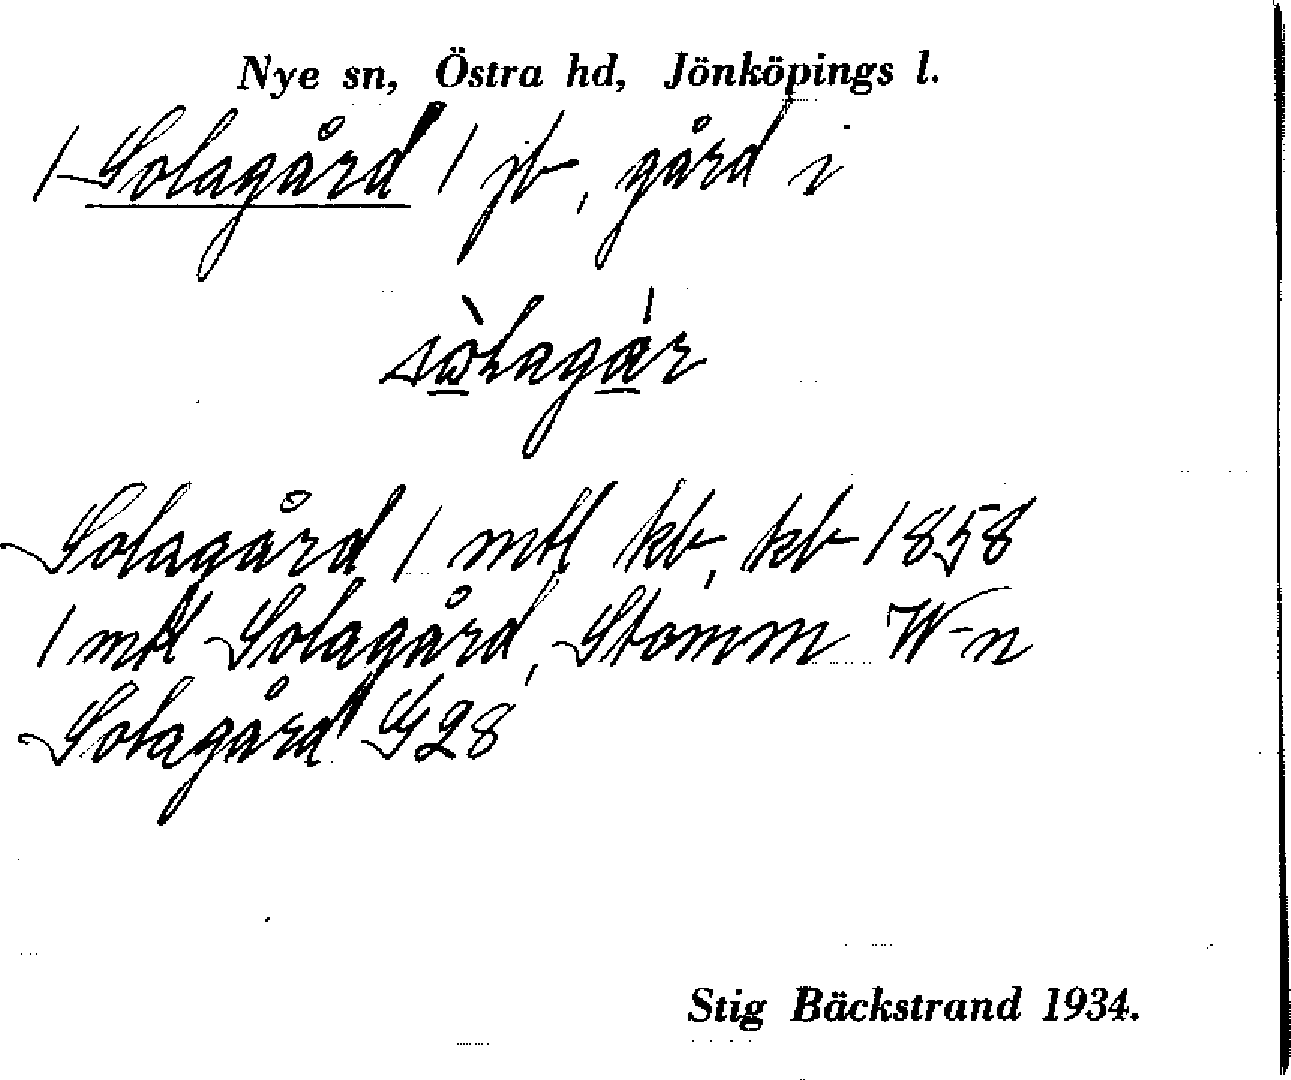 Nye sn, Östra hd, Jönköpings l.
1 Solagård 1 jb, gård i
Solagård 1 mtl kb, kb 1858
1 mtl Solagård, Stomm W-n
Solagård G28
Stig Bäckstrand 1934.